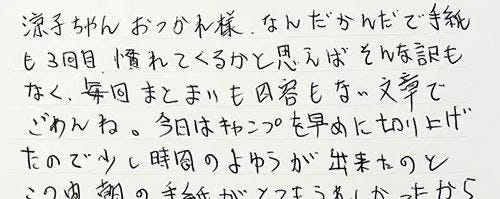 涼子ちゃん おつかれ様、なんだかんだで手紙
も3回目 慣れてくるかと思えば そんな訳も
なく、毎回 まとまりも内容もない文章で
ごめんね。今日はキャンプを早めに切り上げ
たので少し時間のよゆうが出来たのと
この間 朝の手紙がとてもうれしかったから